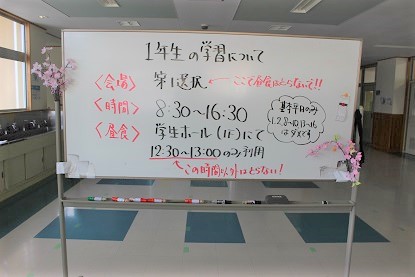 1年生の学習について
〈会場〉 第1選択 ←ここで昼食はとらないで!!
〈時間〉 8:30〜16:30
〈昼食〉 学生ホール(1F)にて
12:30〜13:00のみ利用
↑この時間以外はとらない!
基本平日のみ
1.2.8.9.10.15.16
はダメです